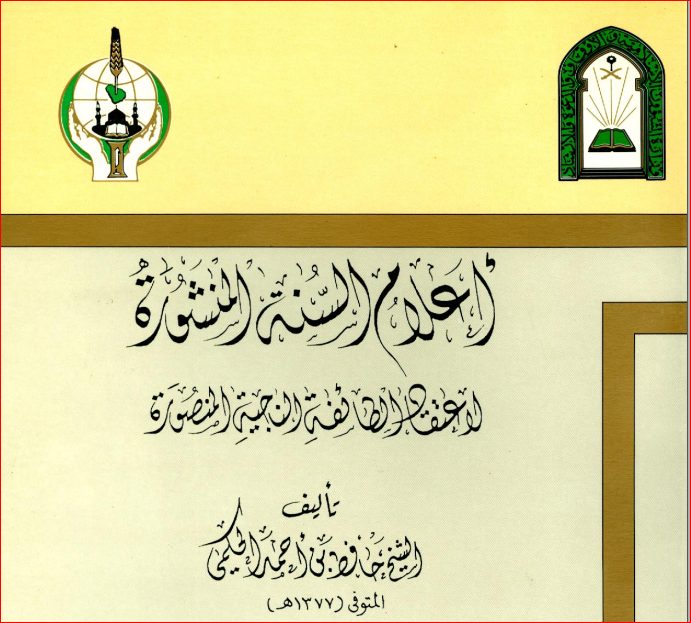 أعلام السُّنة المنشورة
لاعتقاد الطائفة الناجية المنصورة
تأليف
الشيخ حافظ بن أحمد الحكمي
المتوفى (١٣٧٧هـ)